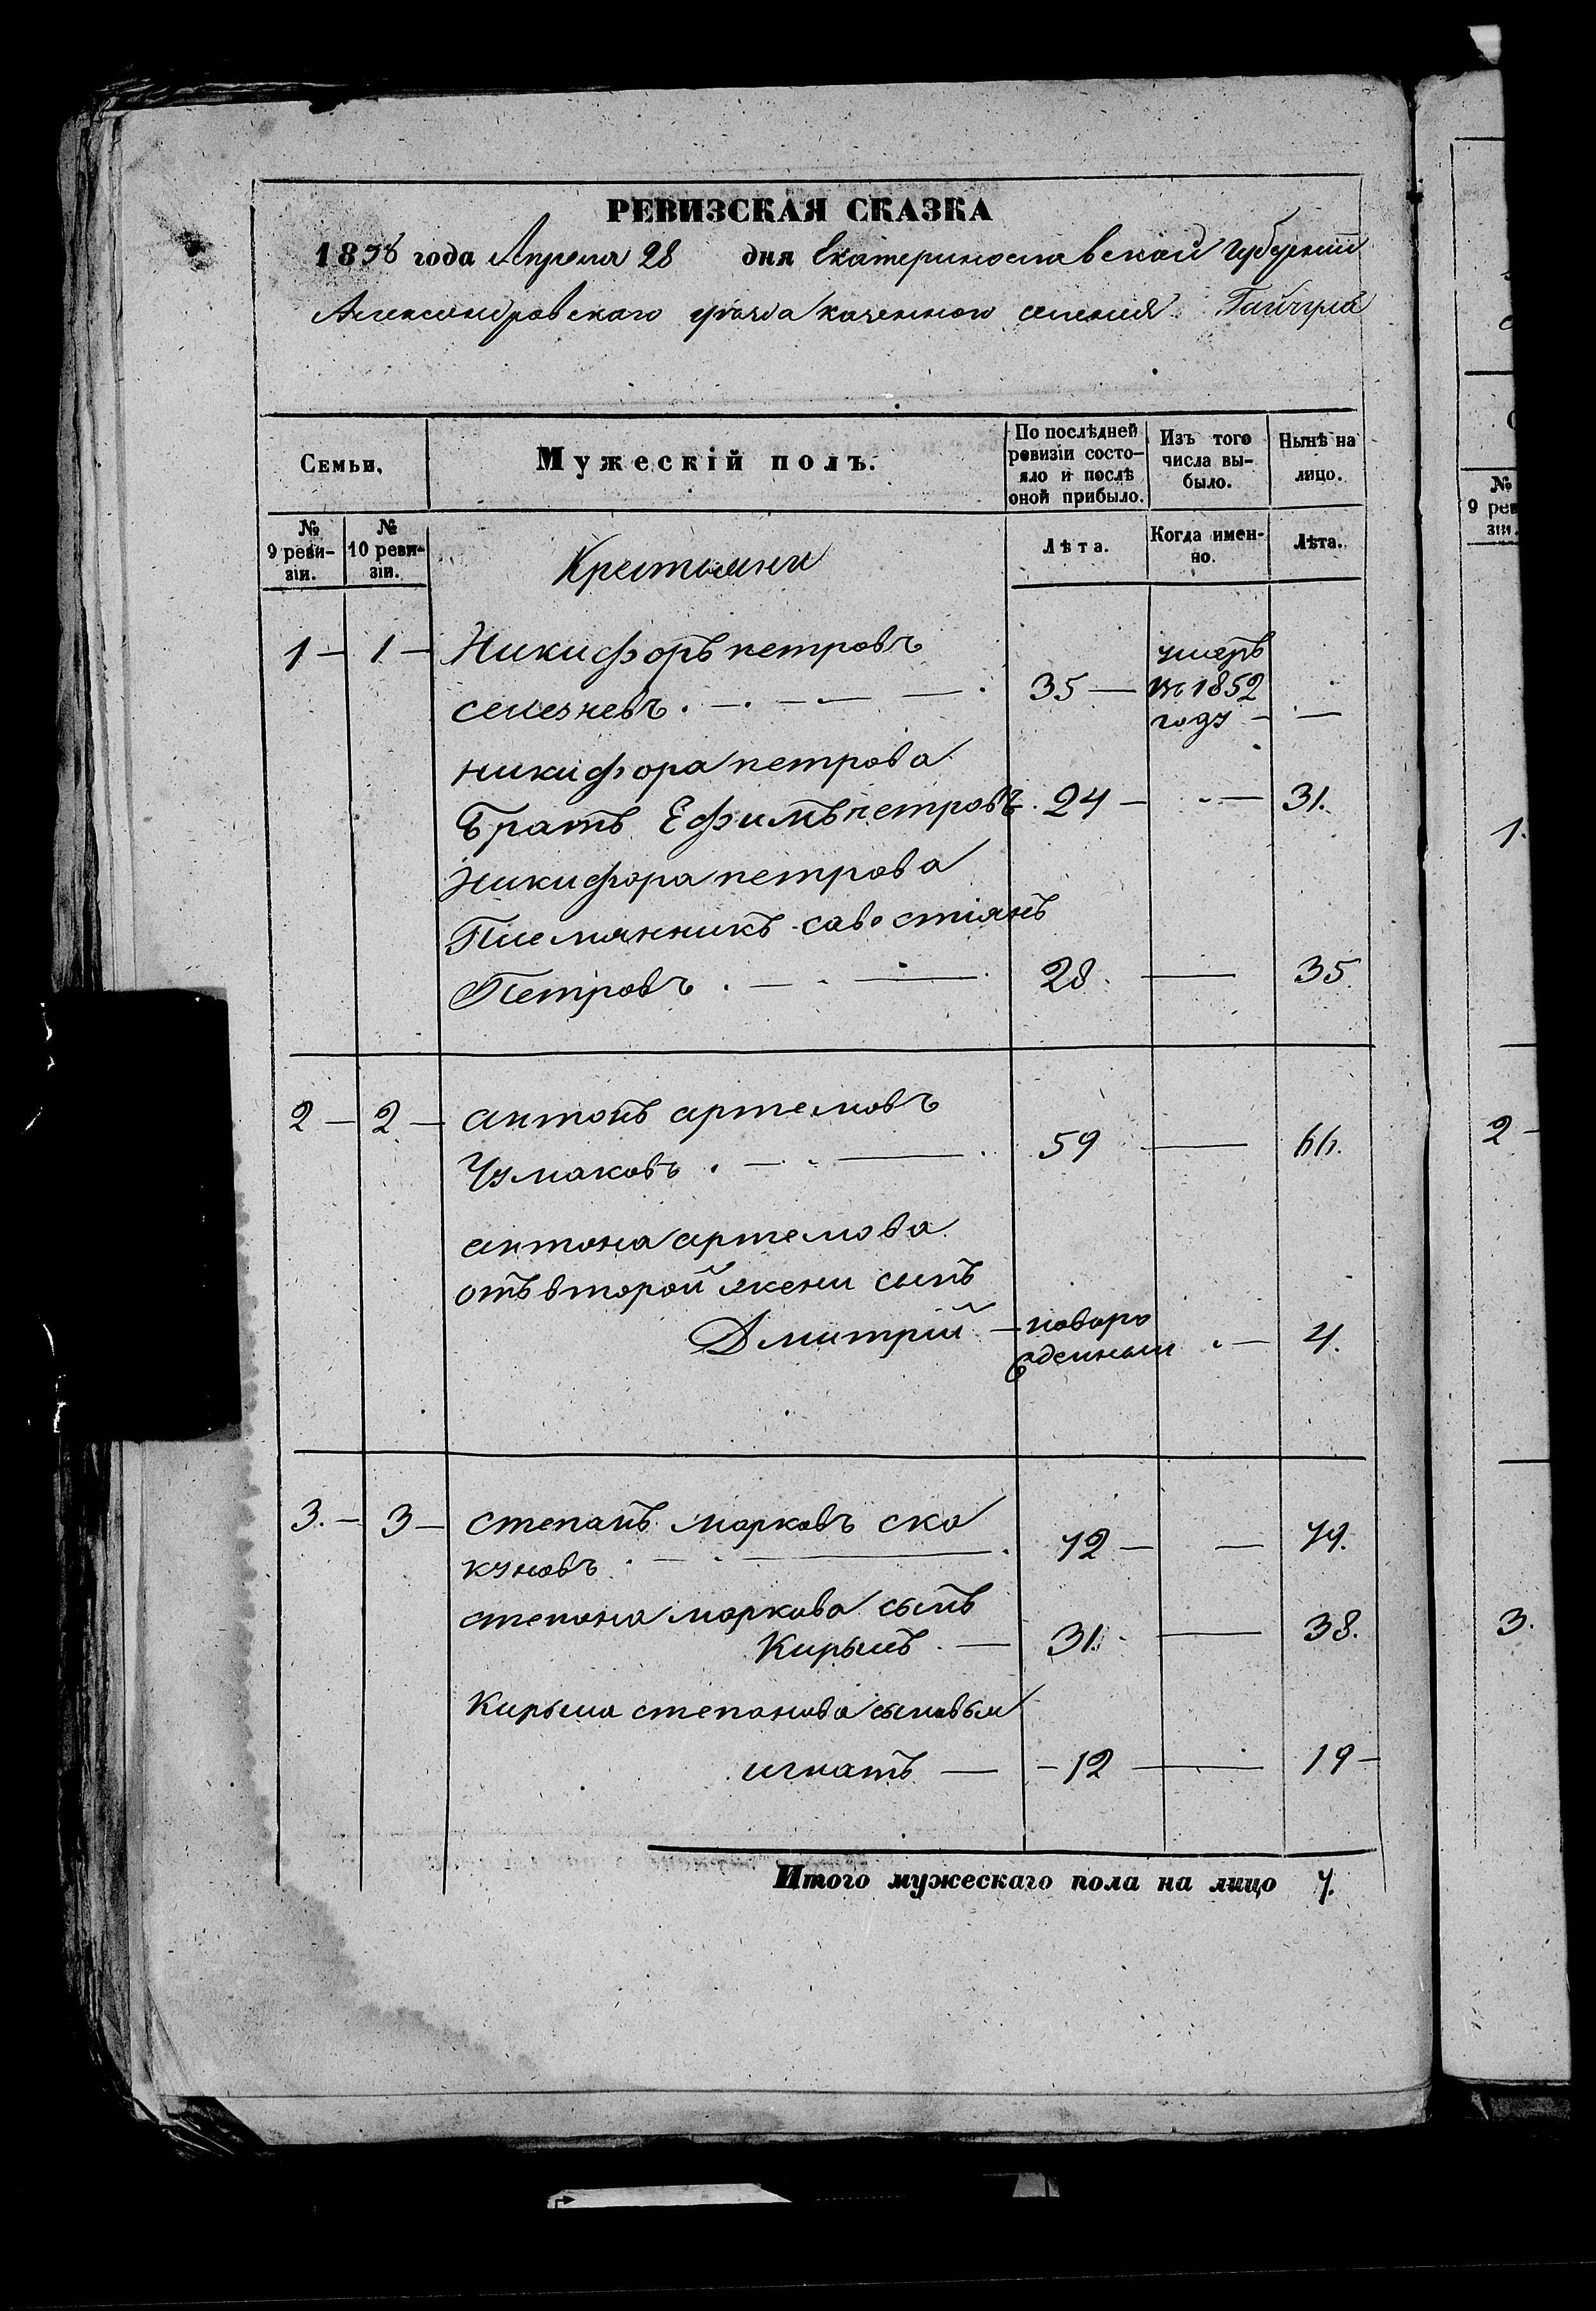 РЕВИЗСКАЯ СКАЗКА
1858 года Апреля 28 дня Екатеринославской Губернии
Александровскаго уезда казенного селения Гайчула
Семьи.
Мужескій полъ.
По послѣдней ревизіи состо-
яло и послѣ
оной прибыло.
Изъ того
числа вы-
было.
Нынѣ на
лицо.
№
9 реви-
зіи.
№
10 реви-
зіи.
Крестьяни
Лѣта.
Когда имен-
но.
Лѣта.
1 — 1 — Никифоръ петровъ
селезневъ. 35 — умеръ
въ 1852
году —
никифора петрова
братъ Ефимъ петровъ. 24 — 31.
Никифора петрова
Племянникъ савостіянъ
Петровъ. 28. — 35.
2 — 2 — антонъ артемовъ
Чумаковъ. 59 — 66.
антона артемова
отъ второй жени сынъ
Дмитрій — новоро
жденный — 4.
3. — 3 — степанъ марковъ ско
куновъ. 72 — 79.
степана маркова сынъ
Кирылъ. — 31. — 38.
Кирыла степанова сыновья
игнатъ — 12 — 19 —
Итого мужескаго пола на лицо 7.
№
9 реви
зіи.
1.
2 —
3.